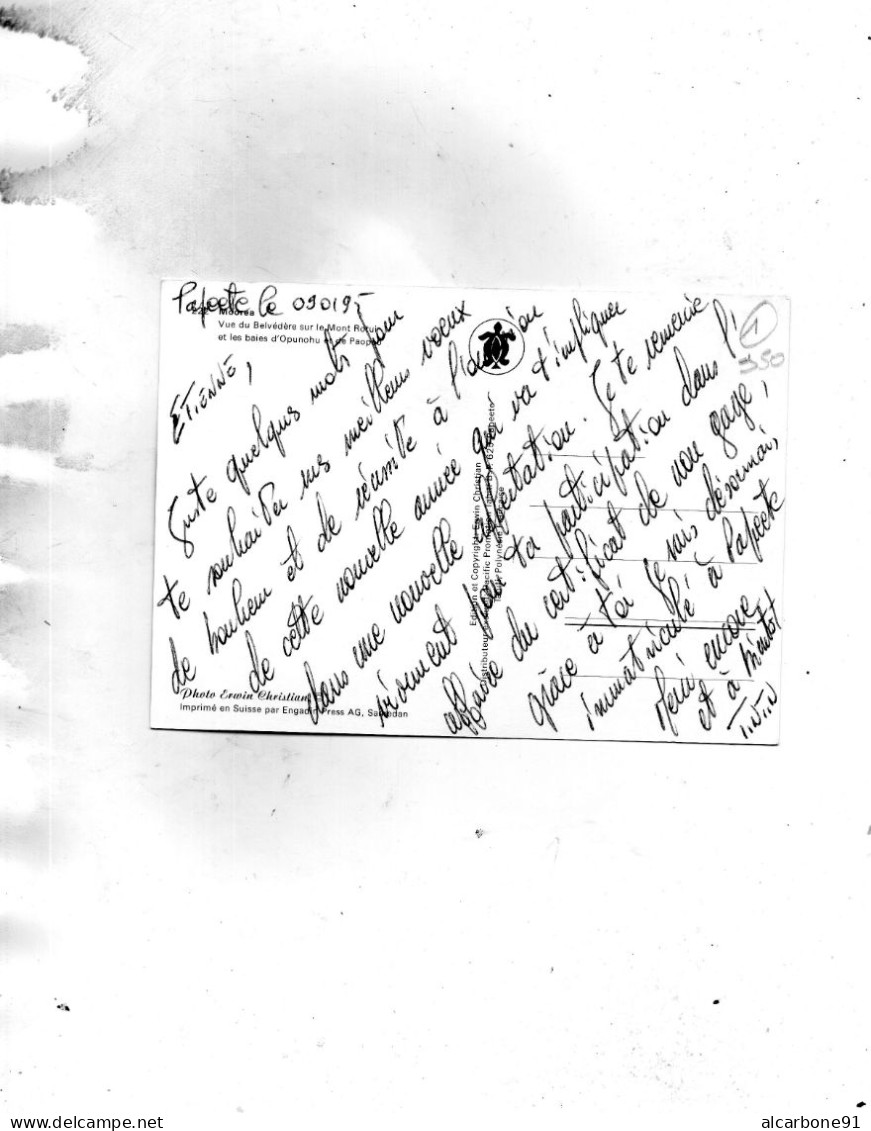 Papeete le 090195
Moorea
Vue du Belvédère sur le Mont Rotui
et les baies d'Opunohu et de Paopao
ETIENNE,
Juste quelques mots pour
te souhaiter mes meilleurs voeux
de bonheur et de réussite à l'occasion
de cette nouvelle année qui va t'impliquer
dans une nouvelle orientation. Je te remercie
vivement pour ta participation dans l'
affaire du certificat de non gage,
grâce à toi je suis désormais
immatriculé à Papeete
Merci encore
et à bientôt
Photo Erwin Christian
Imprimé en Suisse par Engadin Press AG, Samedan
Edition et Copyright: Erwin Christian
Distributeur Pacific Promotion
1
350
alcarbone91